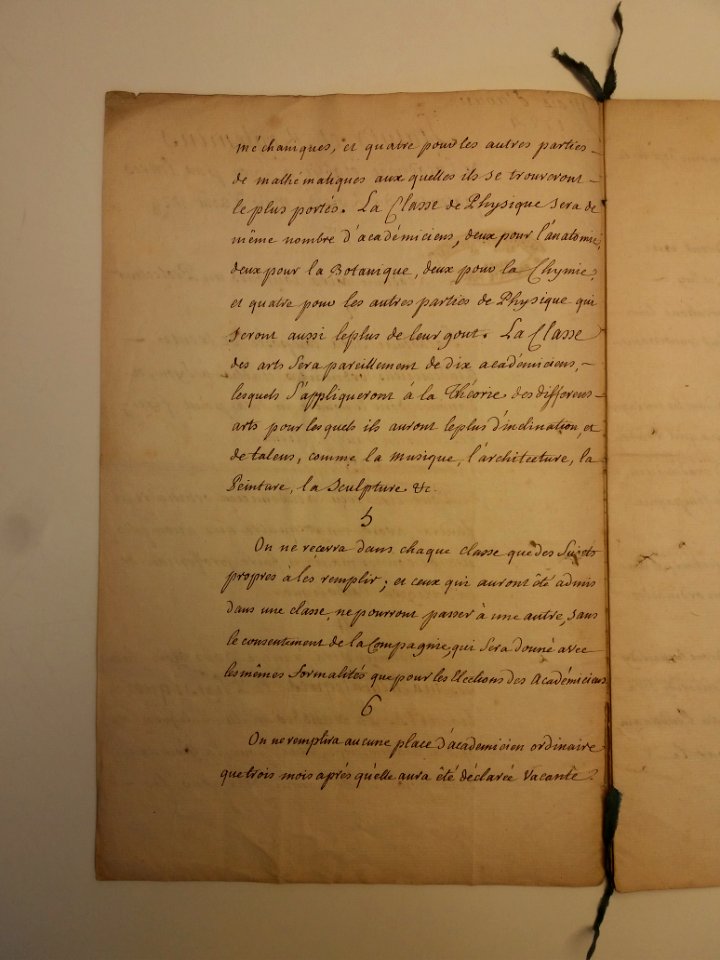 méchaniques, et quatre pour les autres parties
de mathématiques aux quelles ils se trouveront
le plus portés. La Classe de Physique sera de
même nombre d'académiciens, deux pour l'anatomie,
deux pour la Botanique, deux pour la Chymie,
et quatre pour les autres parties de Physique qui
seront aussi le plus de leur gout. La Classe
des arts sera pareillement de dix académiciens,
lesquels s'appliqueront à la Théorie des differens
arts pour lesquels ils auront le plus d'inclination, et
de talens, comme la musique, l'architecture, la
Peinture, la Sculpture &c.
5
On ne recevra dans chaque classe que des Sujets
propres à les remplir; et ceux qui auront êté admis
dans une classe, ne pourront passer à une autre, sans
le consentement de la Compagnie, qui sera donné avec
les mêmes formalités que pour les Elections des Académiciens
6
On ne remplira aucune place d'académicien ordinaire
que trois mois aprés qu'elle aura êté déclarée vacante.